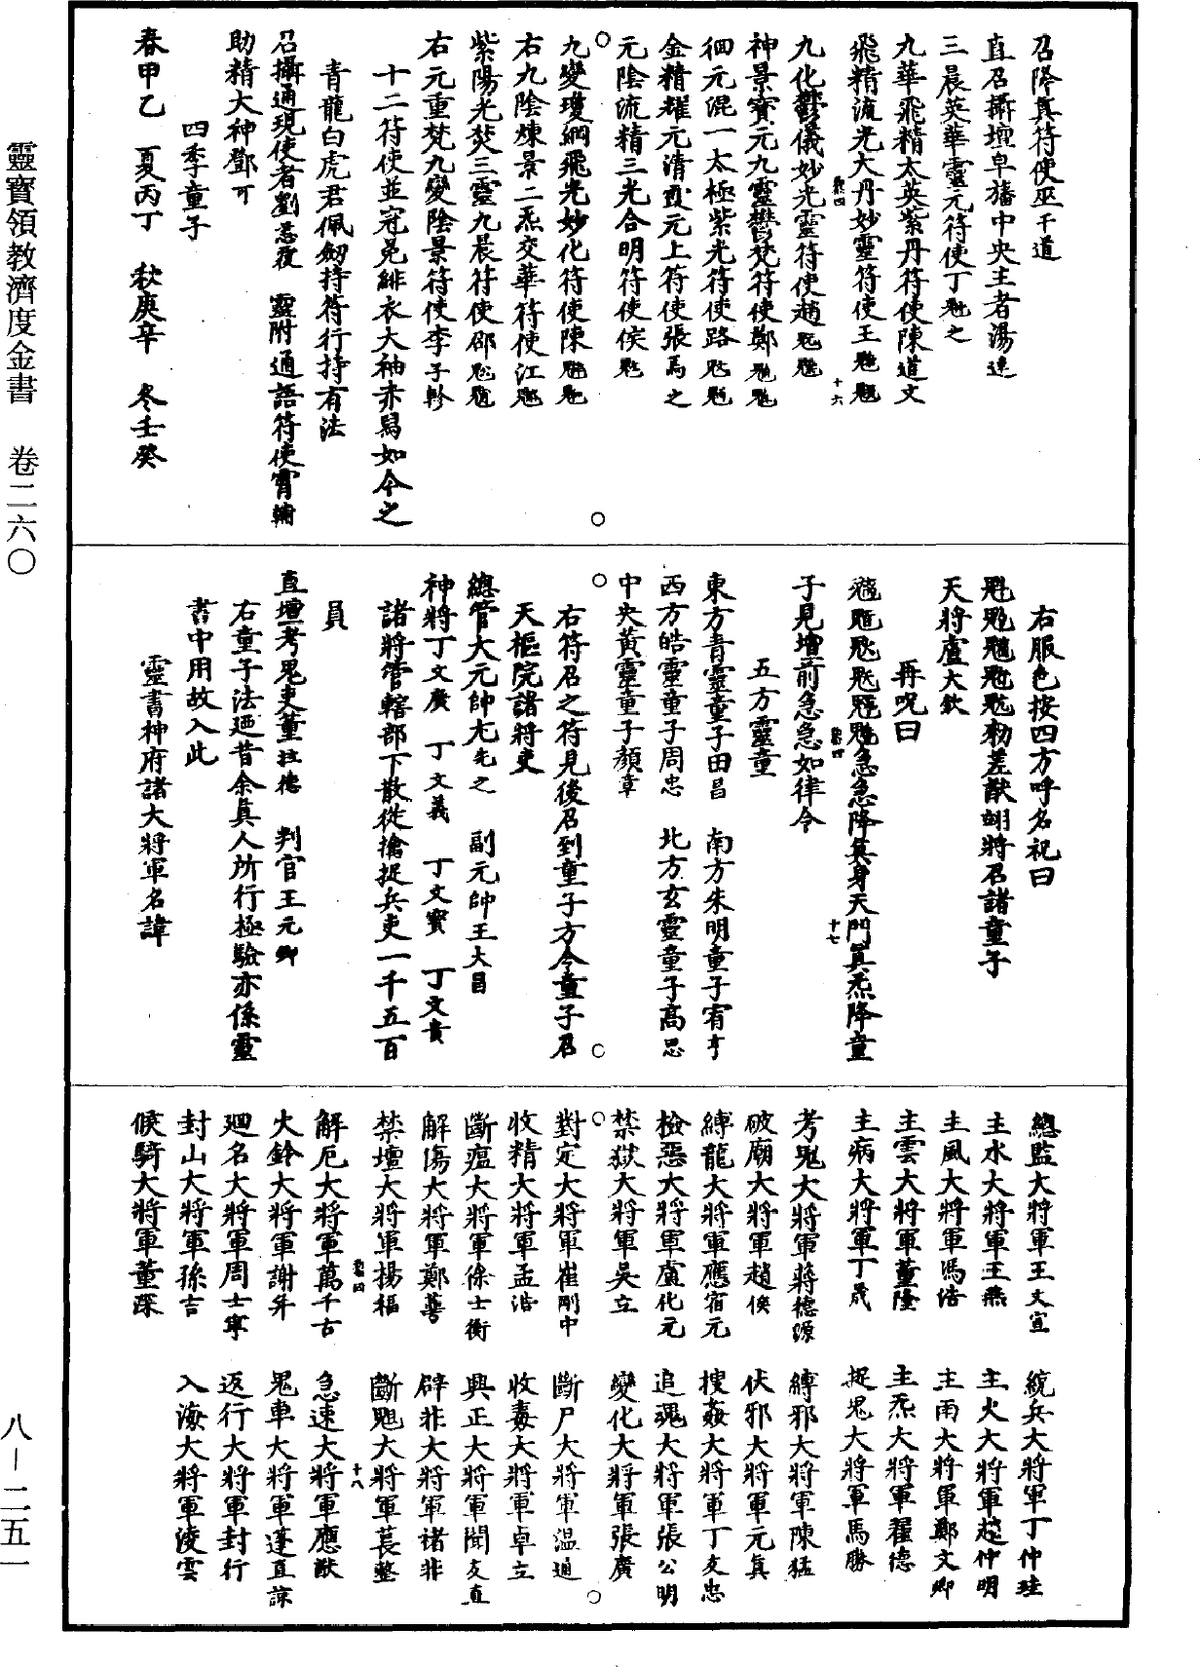 靈寶領教濟度金書　卷二六〇
八—二五一
召降真符使巫千道
直召攝壇皁旛中央主者湯達
三晨英華靈元符使丁之
九華飛精太英紫丹符使陳道文
飛精流光大丹妙靈符使王
九化鬱儀妙光靈符使趙
神景寶元九靈鬱梵符使鄭
徊元混一太極紫光符使路
金精耀元清霞元上符使張焉之
元陰流精三光合明符使侯
九變瓊綱飛光妙化符使陳
右九陰煉景二炁交華符使江
紫陽光焚三靈九晨符使邵
右元重梵九變陰景符使李子軫
十二符使並冠冕緋衣大袖赤舄如今之
青龍白虎君佩劒持符行持有法
召攝通現使者劉　靈附通語符使霄
助精大神鄧可
四季童子
春甲乙　夏丙丁　秋庚辛　冬壬癸
右服色按四方呼名祀曰
勑差猷翊將召諸童子
天將盧大欽
再呪曰
急急降真身天門真炁降童
子見壇前急急如律令
五方靈童
東方青靈童子田昌　南方朱明童子宥亨
西方皓靈童子周忠　北方玄靈童子高思
中央黃靈童子顏章
右符召之符見後召到童子方令童子召
天樞院諸將吏
總管大元帥尤先之　副元帥王大昌
神將丁文廣　丁文義　丁文寶　丁文貴
諸將管轄部下散從擒捉兵吏一千五百
員
直壇考鬼吏董拉德　判官王元卿
右童子法廼昔余真人所行極驗亦係靈
書中用故入此
靈書神府諸大將軍名諱
總監大將軍王文宣　統兵大將軍丁仲珪
主水大將軍王燕　主火大將軍趙仲明
主風大將軍馮浩　主雨大將軍鄭文卿
主雲大將軍董隆　主炁大將軍翟德
主病大將軍丁晟　捉鬼大將軍馬勝
考鬼大將軍蔣德源　縛邪大將軍陳猛
破廟大將軍趙侯　伏邪大將軍元真
縛龍大將軍應宿元　搜姦大將軍丁文忠
檢惡大將軍盧化元　追魂大將軍張公明
禁獄大將軍吳立　變化大將軍張廣
對定大將軍崔剛中　斷尸大將軍溫通
收精大將軍孟浩　收毒大將軍卓立
斷瘟大將軍徐士衡　興正大將軍聞友直
解傷大將軍鄭蕚　辟非大將軍褚非
禁壇大將軍揚福　斷大將軍萇整
解厄大將軍萬千古　急速大將軍應猷
火鈴大將軍謝年　鬼車大將軍蓬直諒
廻名大將軍周士寧　返行大將軍封行
封山大將軍孫吉　入海大將軍淩雲
候騎大將軍董琛